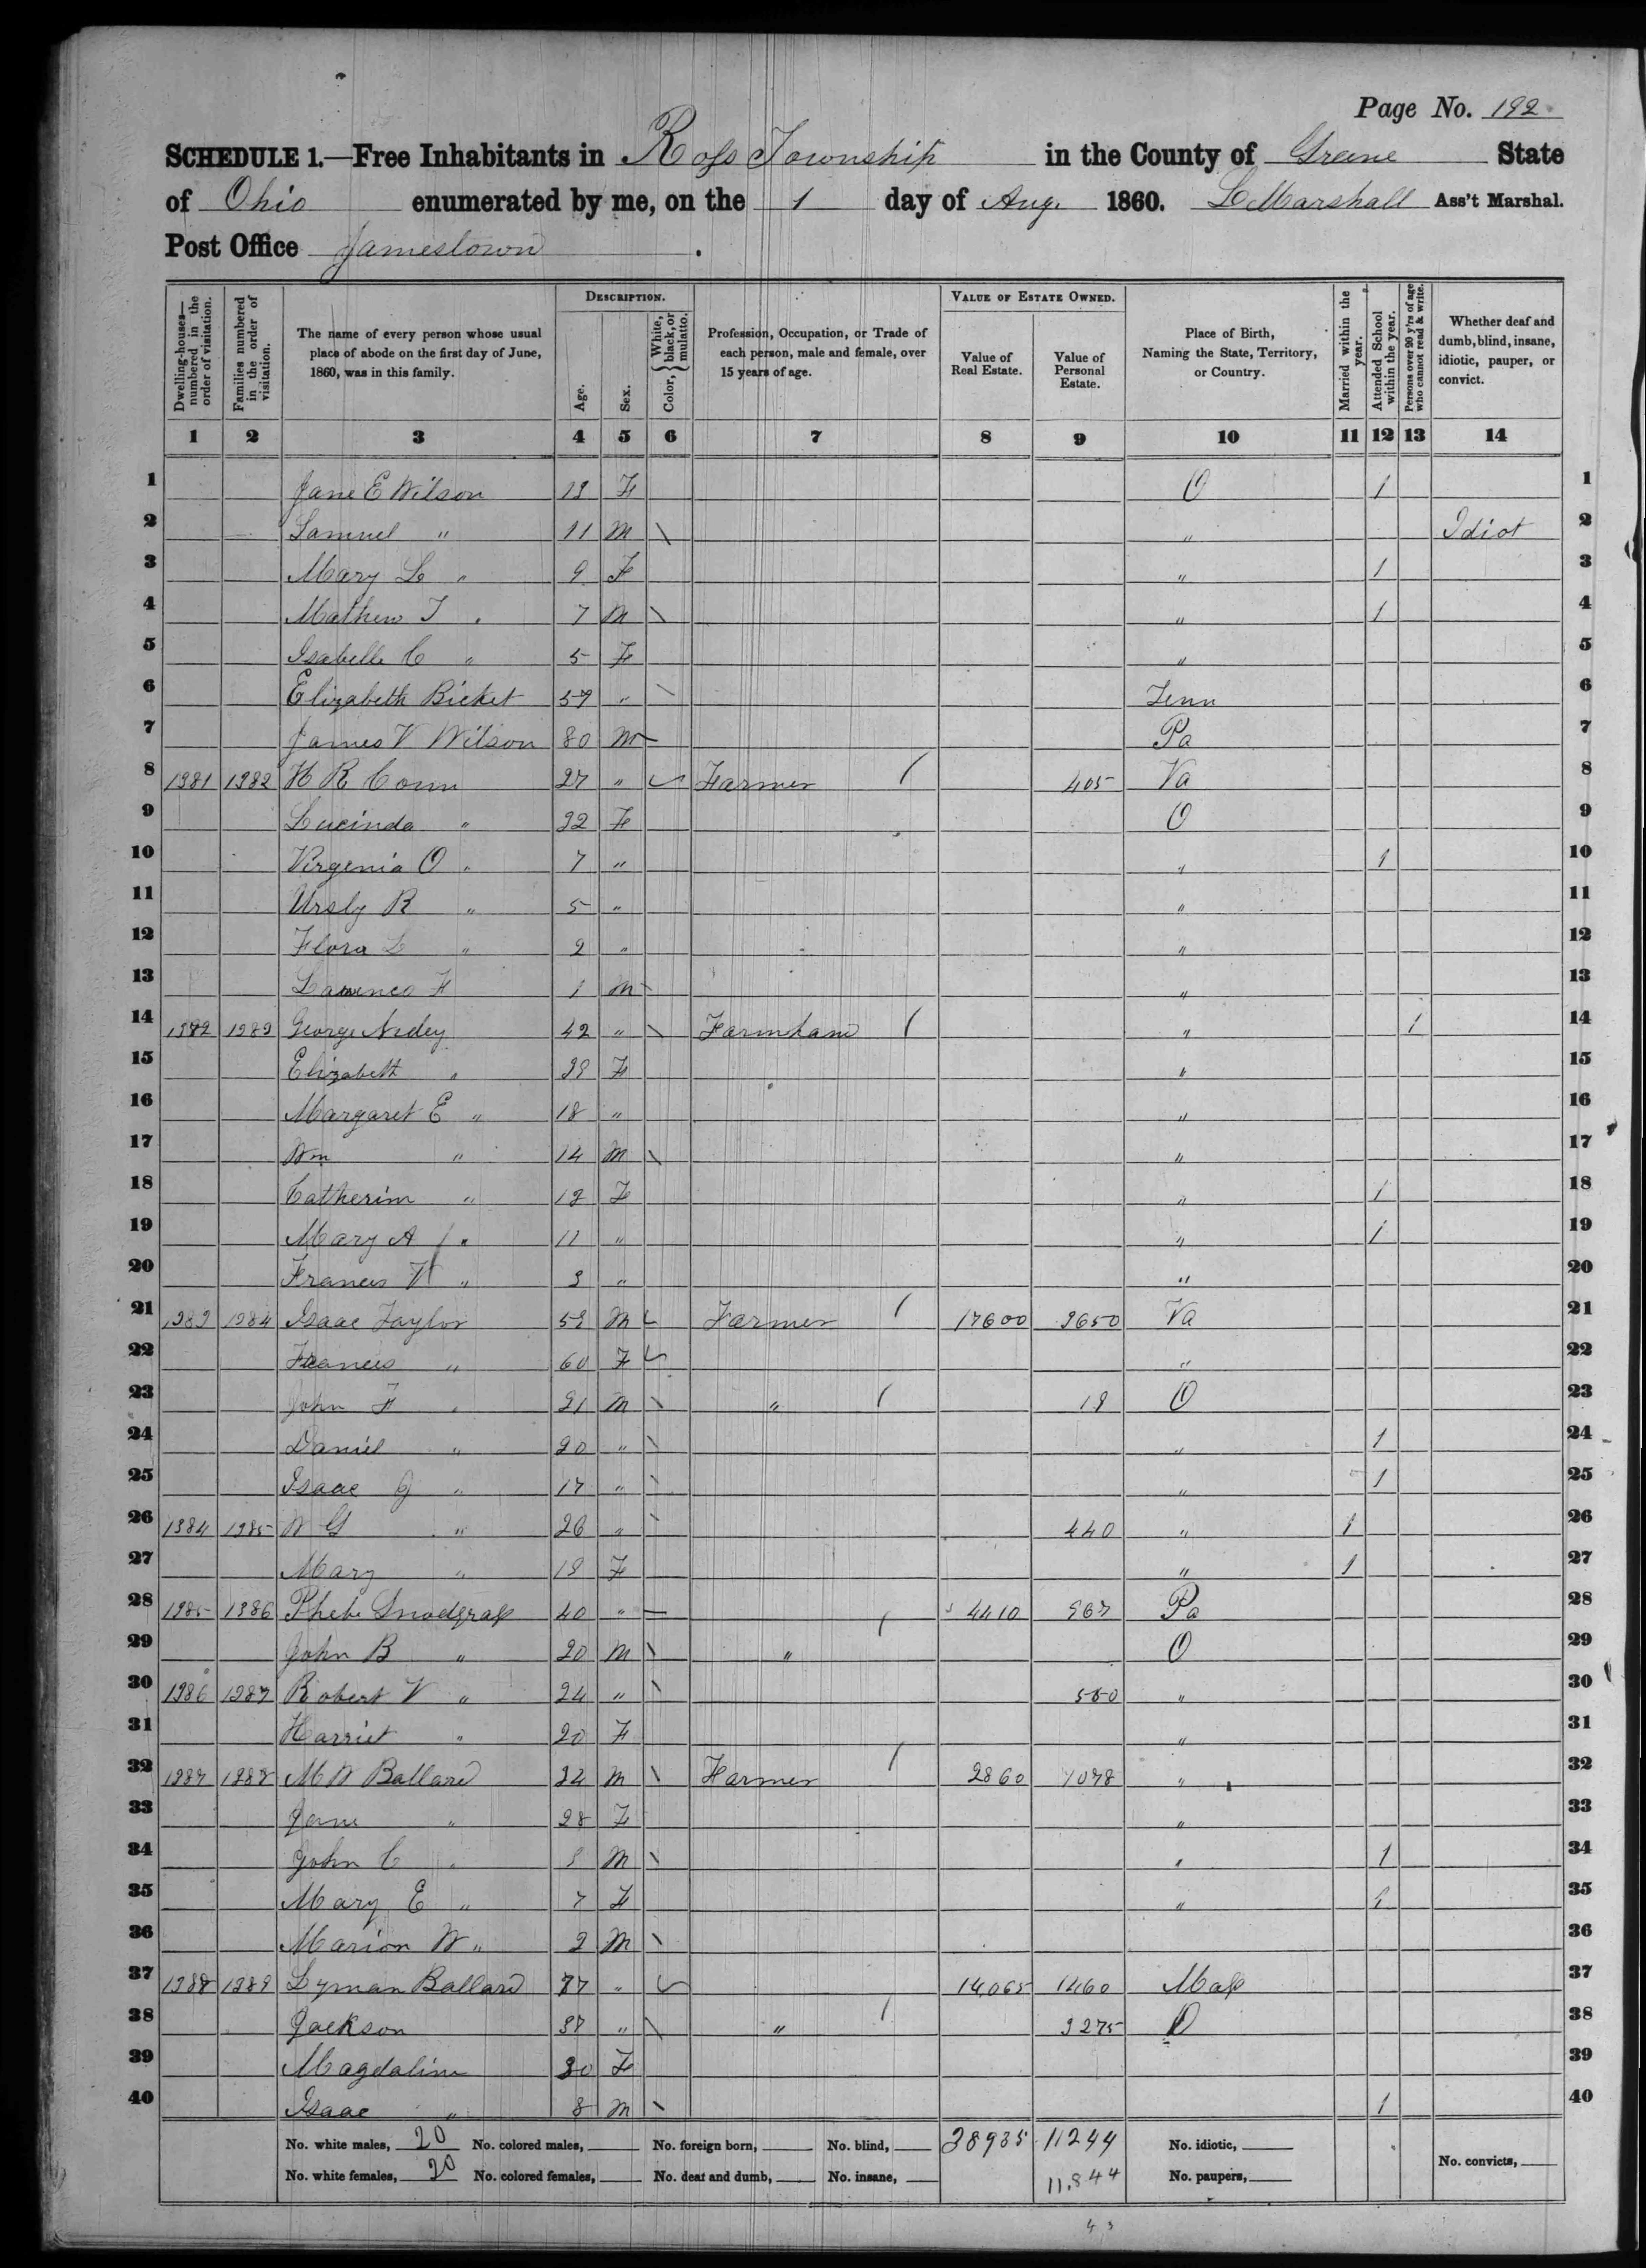 Page No. 192
SCHEDULE 1.—Free Inhabitants in Ross Township in the County of Greene State
of Ohio enumerated by me, on the 1 day of Aug. 1860. L Marshall Ass't Marshal.
Post Office Jamestown .
Dwelling-houses—numbered in the order of visitation. Families numbered in the order of visitation. The name of every person whose usual place of abode on the first day of June, 1860, was in this family. DESCRIPTION. Age. Sex. Color, White, black, or mulatto. Profession, Occupation, or Trade of each person, male and female, over 15 years of age. VALUE OF ESTATE OWNED. Value of Real Estate. Value of Personal Estate. Place of Birth, Naming the State, Territory, or Country. Married within the year. Attended School within the year. Persons over 20 y'rs of age who cannot read & write. Whether deaf and dumb, blind, insane, idiotic, pauper, or convict.
1 2 3 4 5 6 7 8 9 10 11 12 13 14
1 Jane E Wilson 13 F O 1 1
2 Samuel " 11 M \ " Idiot 2
3 Mary L " 9 F " 1 3
4 Mathew T " 7 M \ " 1 4
5 Isabelle C " 5 F " 5
6 Elizabeth Bicket 59 " \ Tenn 6
7 James V Wilson 80 M Pa 7
8 1381 1382 H R Conn 27 " Farmer / 405 Va 8
9 Lucinda " 32 F O 9
10 Virgenia O " 7 " " 1 10
11 Ursly R " 5 " " 11
12 Flora L " 2 " " 12
13 Lawrence F 1 M " 13
14 1382 1383 George Nedey 42 " \ Farmhand / " 1 14
15 Elizabeth " 38 F " 15
16 Margaret E " 18 " " 16
17 Wm " 14 M \ " 17
18 Catherine " 12 F " 1 18
19 Mary A " 11 " " 1 19
20 Frances V " 3 " " 20
21 1383 1384 Isaac Taylor 53 M Farmer / 17600 3650 Va 21
22 Frances " 60 F " 22
23 John F " 21 M \ " / O 23
24 Daniel " 20 " \ " 1 24
25 Isaac G " 17 " \ " 1 25
26 1384 1385 W G " 26 " \ 440 " 1 26
27 Mary " F " 1 27
28 1385 1386 Phebe Snodgrass 40 " 4410 Pa 28
29 John B " 20 M \ " / O 29
30 1386 1387 Robert V " 24 " \ " 30
31 Harriet " 20 F " 31
32 1387 1388 M W Ballard 34 M \ Farmer / 2860 1078 " 32
33 Jane " 28 F " 33
34 John C " M \ " 1 34
35 Mary E " 7 F " 1 35
36 Marion W " 2 M \ 36
37 1388 1389 Lyman Ballard 77 " 14,065 1460 Mass 37
38 Jackson " \ " / 3275 O 38
39 Magdaline 30 F 39
40 Isaac " 8 M \ 1 40
No. white males, 20 No. colored males, No. foreign born, No. blind, 38935 11244 No. idiotic,
No. white females, 20 No. colored females, No. deaf and dumb, No. insane, 11,844 No. paupers, No. convicts,